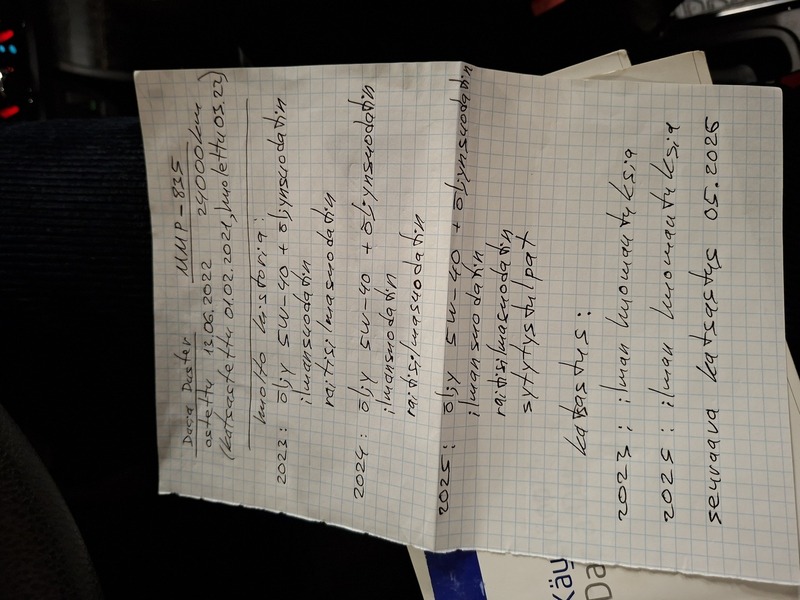 Dacia Duster MMP-835
ostettu 13.06.2022 24000km
(katsastettu 01.02.2021, huolettu 03.22)
huolto historia:
2023: öljy 5W-40 + öljynsuodatin
ilmansuodatin
raitisilmasuodatin
2024: öljy 5W-40 + öljynsuodatin
ilmansuodatin
raitisilmasuodatin
2025: öljy 5W-40 + öljynsuodatin
ilmansuodatin
raitisilmasuodatin
sytytystulpat
katsastus:
2023: ilman huomautuksia
2025: ilman huomautuksia
seuraava katsastus 05.2026
Käy
Da